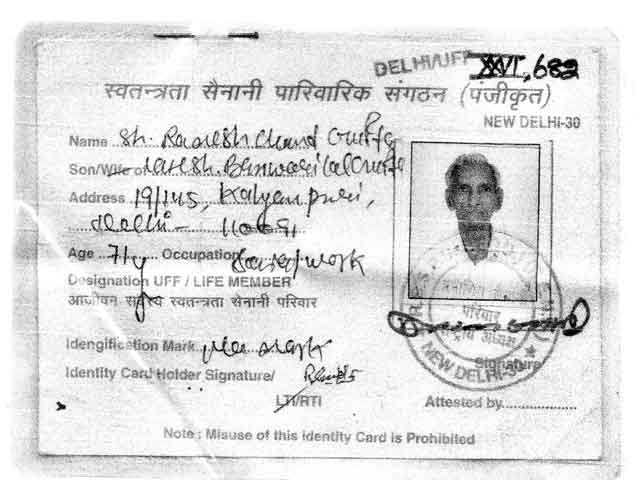 DELHI/UFF XXVI, 682
स्वतन्त्रता सैनानी पारिवारिक संगठन (पंजीकृत)
NEW DELHI-30
Name Sh. Ramesh Chand Gupta
Son/Wife of Late Sh. Banwari Lal Gupta
Address 19/145, Kalyan puri,
Delhi - 110091
Age 71y Occupation Social work
Designation UFF / LIFE MEMBER
आजीवन सदस्य स्वतन्त्रता सैनानी परिवार
परिवार
NEW DELHI-30
Idengification Mark
Signature
Identity Card Holder Signature/
LTI/RTI
Attested by
Note : Misuse of this Identity Card is Prohibited